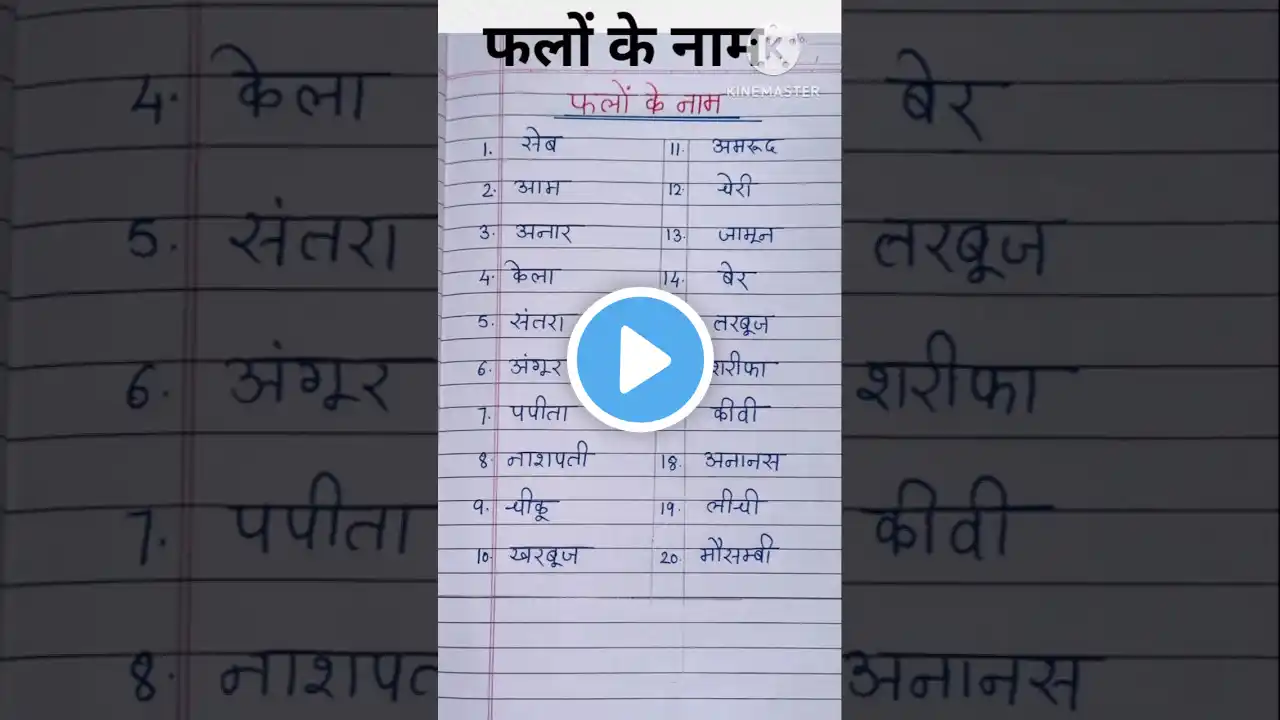 फलों के नाम
KINEMASTER
फलों के नाम
1. सेब
2. आम
3. अनार
4. केला
5. संतरा
6. अंगूर
7. पपीता
8. नाशपती
9. चीकू
10. खरबूज
11. अमरूद
12. चेरी
13. जामून
14. बेर
तरबूज
शरीफा
कीवी
18. अनानस
19. लीची
20. मौसम्बी
4. केला
5. संतरा
6. अंगूर
7. पपीता
8. नाशपत
बेर
तरबूज
शरीफा
कीवी
अनानस